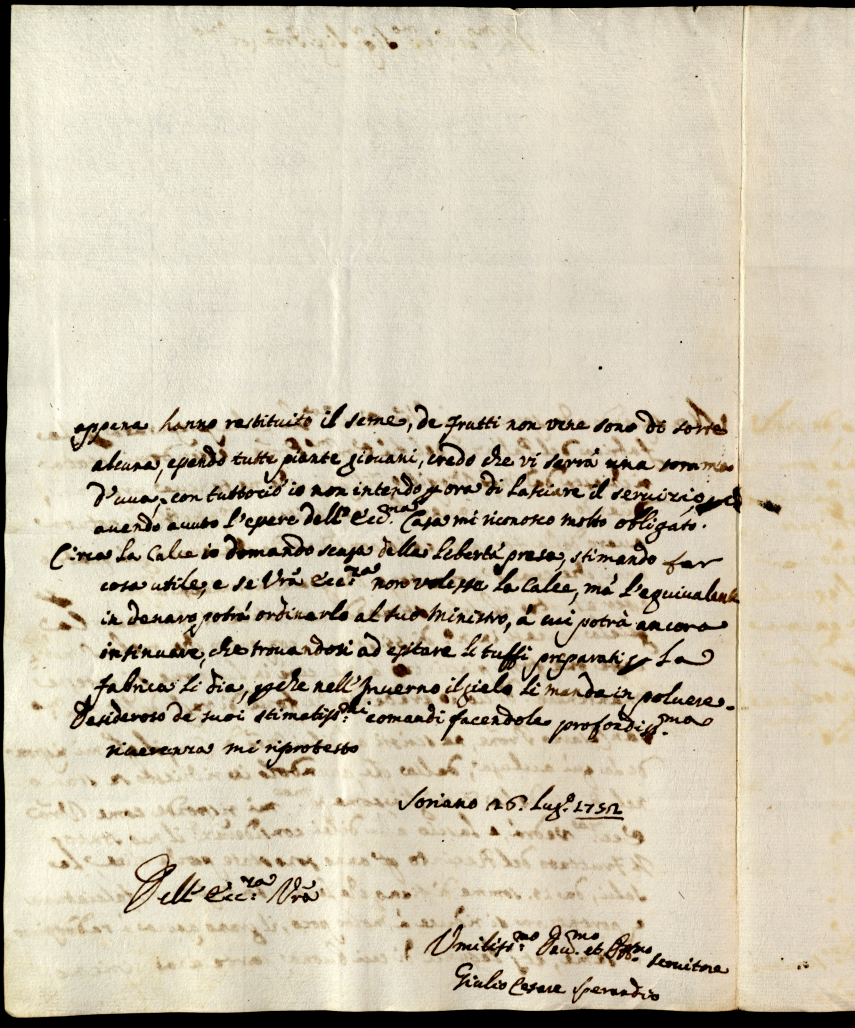 appena hanno restituito il seme, de frutti non vene sono di sorte
alcuna, essendo tutte piante giovani, credo che vi serrà una somma
d'uua, con tuttociò io non intendo p ora di lasciare il servizio, ed
auendo auuto l'essere dell'Ecc.ma Casa mi riconosco molto obligato.
Circa la Calce io domando scusa della libertà presa, stimando far
cosa utile, e se Vrã Ecc.za non volesse la Calce, mà l'equivalente
in denaro potrà ordinarlo al suo Ministro, à cui potrà ancora
insinuare, che trouandosi ad esitare li tuffi preparati p La
fabrica li dia, pche nell'Inuerno il gielo li manda in poluere.
Desideroso de suoi stimatiss.mi comandi facendole profondiss.ma
riuerenza mi riprotesto
Soriano 26. Lug.o 1752
Dell' Ecc.za Vrã
Umiliss.mo Deu.mo et Obb.mo seruitore
Giulio Cesare Sperandio